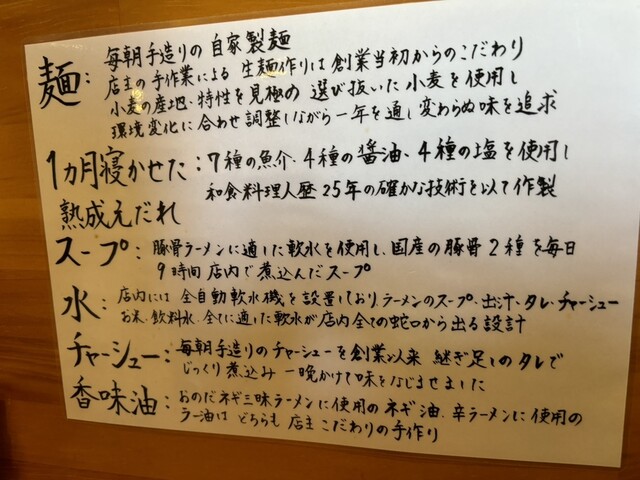 麺: 毎朝手造りの自家製麺
店主の手作業による生麺作りは創業当初からのこだわり
小麦の産地、特性を見極め選び抜いた小麦を使用し
環境変化に合わせ調整しながら一年を通し変わらぬ味を追求
1ヵ月寝かせた: 7種の魚介、4種の醤油、4種の塩を使用し
和食料理人歴25年の確かな技術を以て作製
熟成元だれ
スープ: 豚骨ラーメンに適した軟水を使用し、国産の豚骨2種を毎日
9時間店内で煮込んだスープ
水: 店内には全自動軟水機を設置しておりラーメンのスープ、出汁、タレ、チャーシュー
お米、飲料水、全てに適した軟水が店内全ての蛇口から出る設計
チャーシュー: 毎朝手造りのチャーシューを創業以来継ぎ足しのタレで
じっくり煮込み一晩かけて味をなじませました
香味油: おのだネギ三昧ラーメンに使用のネギ油、辛ラーメンに使用の
ラー油はどちらも店主こだわりの手作り